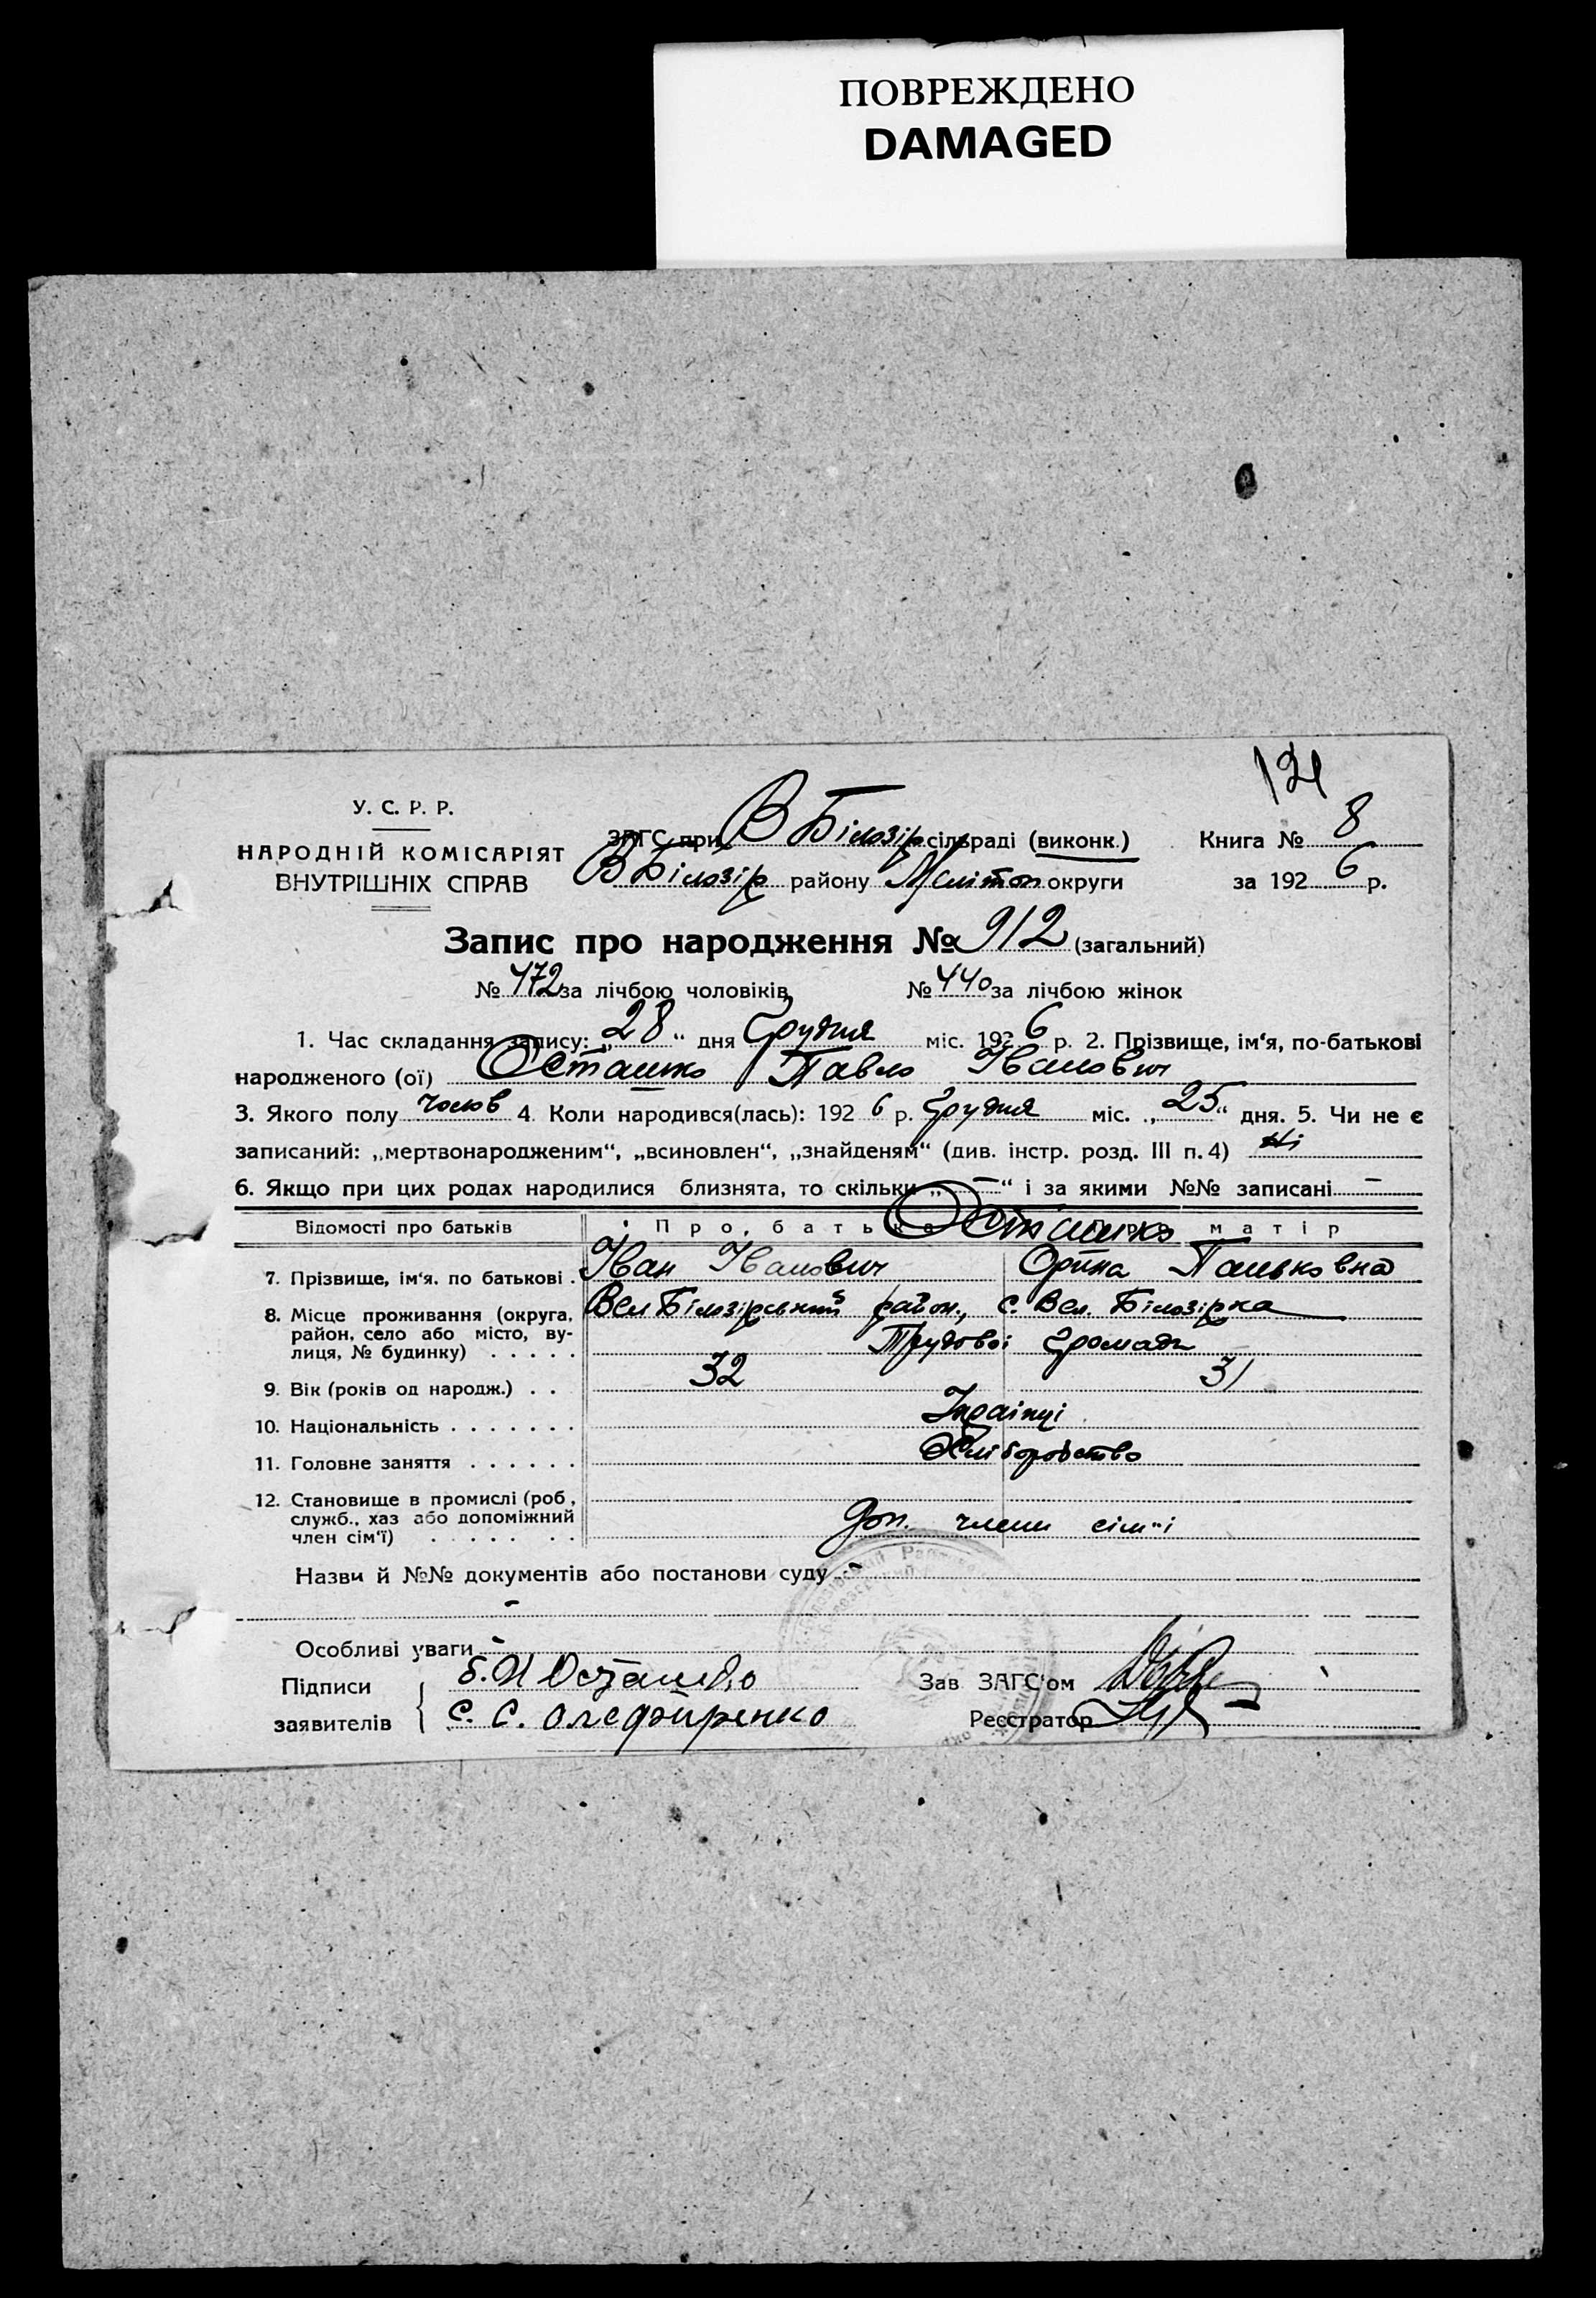 ПОВРЕЖДЕНО
DAMAGED
121
У. С. Р. Р.
НАРОДНІЙ КОМІСАРІЯТ
ВНУТРІШНІХ СПРАВ
ЗАГС при В Білозір сільраді (виконк.)
Книга № 8
В Білозір району Мелітоп округи
за 192 6 р.
Запис про народження № 912 (загальний)
№ 472 за лічбою чоловіків № 440 за лічбою жінок
1. Час складання запису: „28“ дня Грудня міс. 192 6 р. 2. Прізвище, ім'я, по-батькові
народженого (ої) Осташко Павло Іванович
3. Якого полу чолов 4. Коли народився(лась): 192 6 р. Грудня міс. „25“ дня. 5. Чи не є
записаний: „мертвонародженим“, „всиновлен“, „знайденям“ (див. інстр. розд. III п. 4) Ні
6. Якщо при цих родах народилися близнята, то скільки „—“ і за якими №№ записані —
Відомості про батьків Про батька матір
Осташко
7. Прізвище, ім'я. по батькові . Іван Іванович Орина Паньковна
8. Місце проживання (округа, район, село або місто, вулиця, № будинку) . . . . . Вел Білозірський район., с. Вел. Білозірка
Трудової громади
9. Вік (років од народж.) . . 32 31
10. Національність . . . . . . . Українці
11. Головне заняття . . . . . . Хліборобство
12. Становище в промислі (роб, служб., хаз або допоміжний член сім'ї) . . . . . . . Доп. члени сім"ї
Назви й №№ документів або постанови суду -
-
Особливі уваги -
Підписи
заявителів
Осташко
С. С. Олефіренко
Зав ЗАГС'ом
Реєстратор